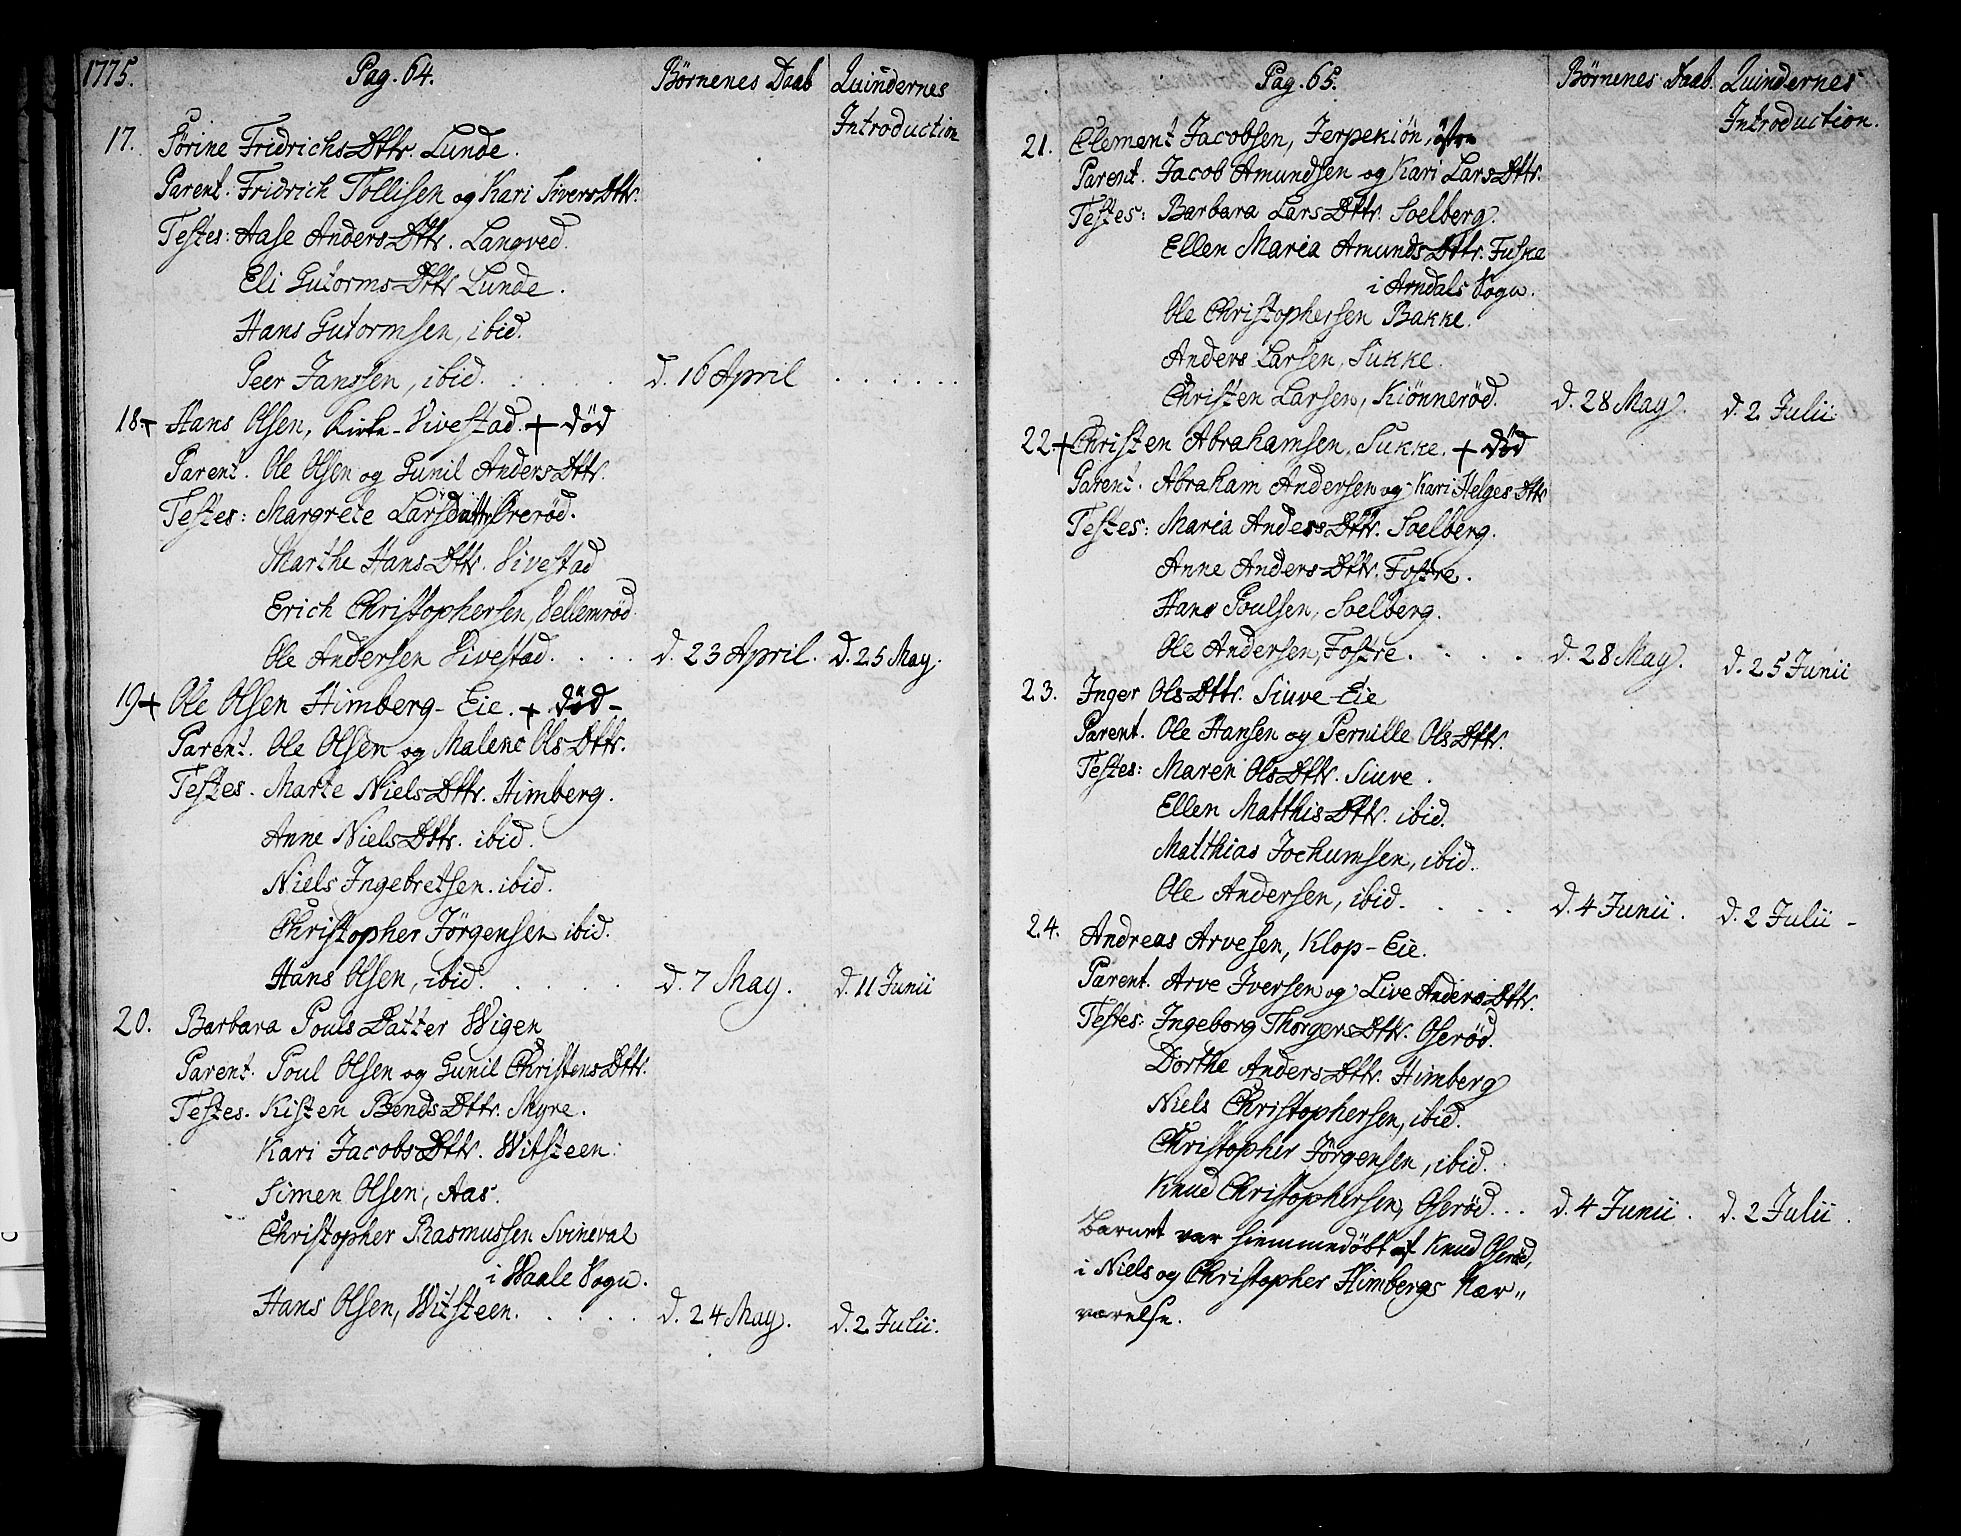 1775. Pag. 64. Börnenes Daab Quindernes
Introduction
17. Sörine FridrichsDttr. Lunde.
Parent. Fridrich Tollisen og Kari SiversDttr.
Testes: Aase AndersDttr. Langved.
Eli GutormsDttr Lunde.
Hans Gutormsen, ibid.
Peer Janssen, ibid. d. 16 April
18+ Hans Olsen, Kirke-Vivestad. + död
Parent. Ole Olsen og Gunil AndersDttr.
Testes: Margrete Larsdattr Öreröd.
Marthe HansDttr. Vivestad
Erich Christophersen, Vellemröd.
Ole Andersen Vivestad. d. 23 April. d. 25 May.
19+ Ole Olsen Himberg-Eie. + död-
Parent. Ole Olsen og Malene OlsDttr.
Testes. Marte NielsDttr. Himberg.
Anne NielsDttr. ibid.
Niels Ingebretsen. ibid.
Christopher Jörgensen ibid.
Hans Olsen, ibid. d. 7 May. d. 11 Junii
20. Barbara Pouls Datter Wigen
Parent. Poul Olsen og Gunil ChristensDttr.
Testes. Kisten BendsDttr. Myre.
Kari JacobsDttr. Witsteen:
Simen Olsen, Aas.
Christopher Rasmussen Svineval
i Waale Sogn.
Hans Olsen, Witsteen. d. 24 May. d. 2 Julii.
Pag. 65. Börnenes Daab. Quindernes
Introduction.
21. Clement Jacobsen, Jerpekiön, östre
Parent. Jacob Amundsen og Kari LarsDttr.
Testes: Barbara LarsDttr. Soelberg.
Ellen Maria AmundsDttr. Fuske
i Arndals Sogn.
Ole Christophersen Bakke.
Anders Larsen, Sukke.
Christen Larsen, Kiönneröd. d. 28 May. d. 2 Julii
22+ Christen Abrahamsen, Sukke. + död
Parent. Abraham Andersen og Kari HelgesDttr
Testes: Maria AndersDttr. Soelberg.
Anne AndersDttr. Fostre.
Hans Poulsen, Soelberg.
Ole Andersen, Fostre. d. 28 May. d. 25 Junii
23. Inger OlsDttr. Siuve-Eie
Parent. Ole Hansen og Pernille OlsDttr.
Testes: Maren OlsDttr. Siuve.
Ellen MatthisDttr. ibid.
Matthias Jochumsen, ibid.
Ole Andersen, ibid. d. 4 Junii. d. 2 Julii-
24. Andreas Arvesen, Klop-Eie.
Parent. Arve Iversen og Live AndersDttr.
Testes: Ingeborg ThorgersDttr. Oseröd.
Dorthe AndersDttr. Himberg
Niels Christophersen, ibid.
Christopher Jörgensen, ibid.
Knud Christophersen, Oseröd... d. 4 Junii. d. 2 Julii.
Barnet var hiemmedöbt af Knud Oseröd,
i Niels og Christopher Himbergs Nær„
værelse.